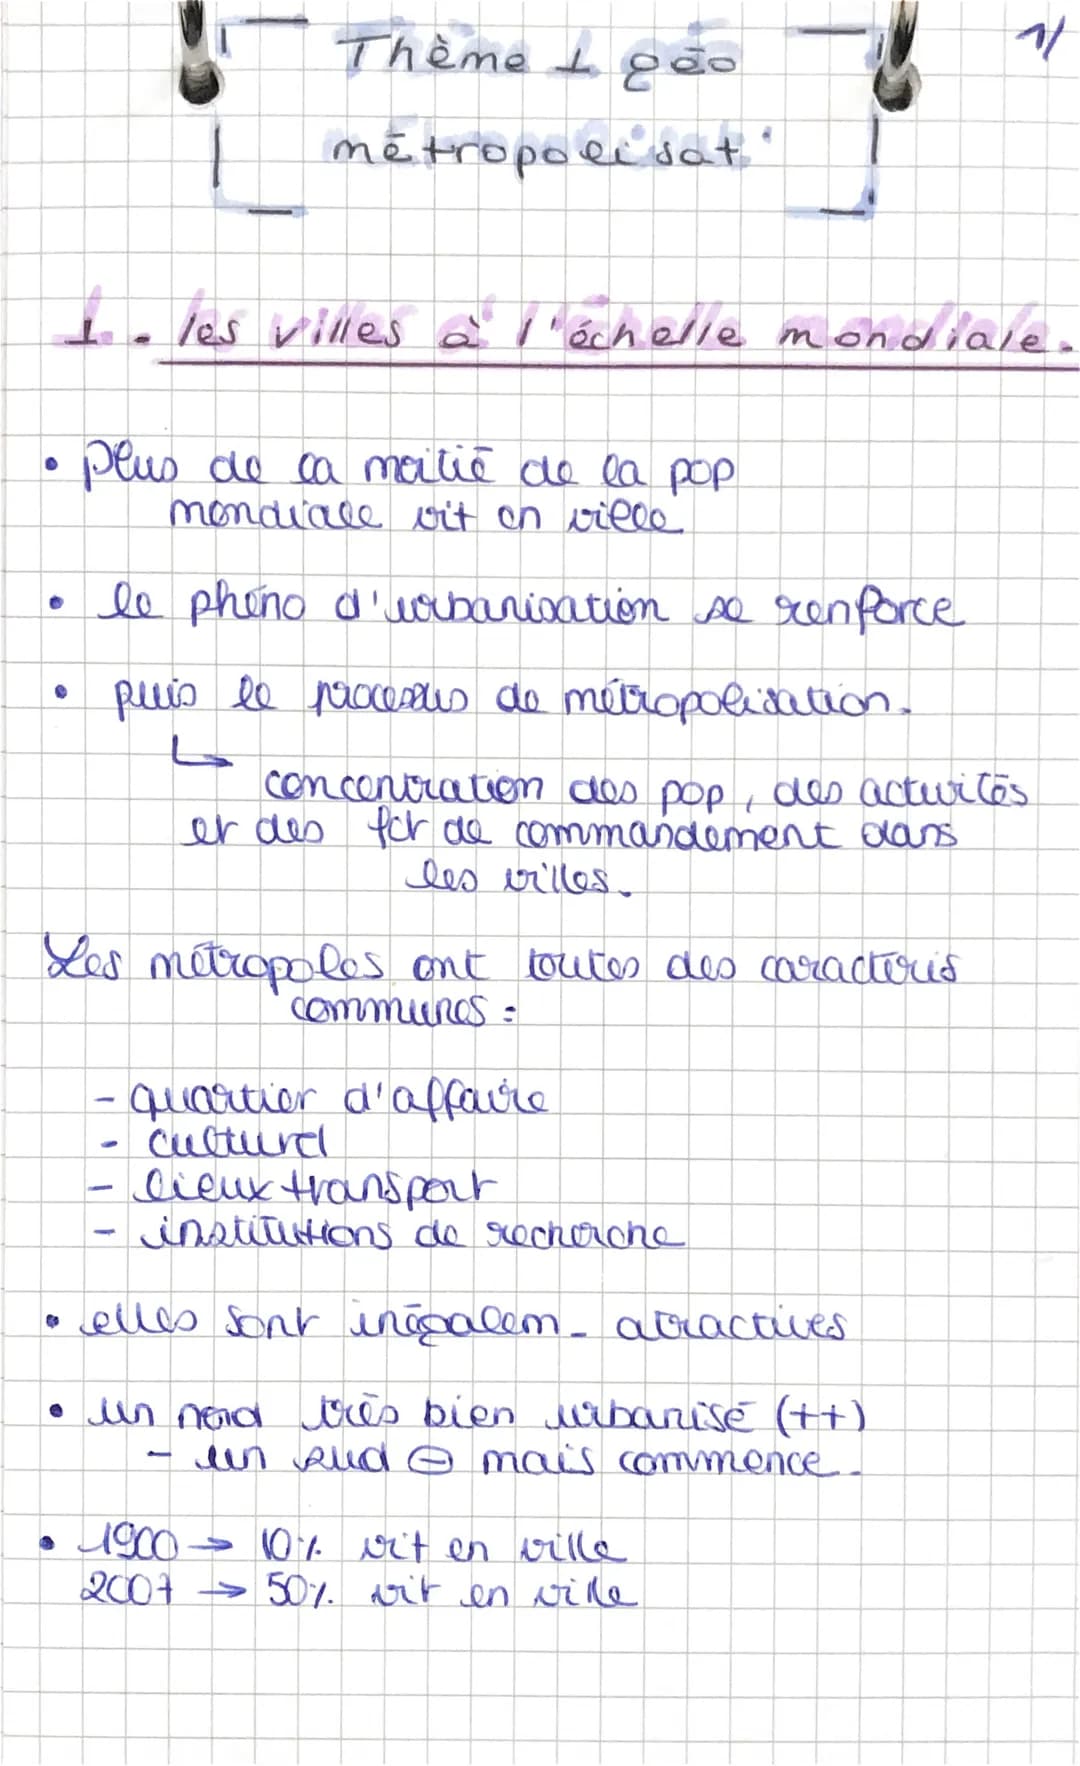 Thème 1 géo
1/
métropolisat°
1. les villes à l'échelle mondiale.
• plus de la moitié de la pop
mondiale vit en ville
• le phéno d'urbanisation se renforce
• puis le processus de métropolisation.
↳ concentration des pop, des activités
et des fct de commandement dans
les villes.
Les métropoles ont toutes des caractéris
communes :
- quartier d'affaire
- culturel
- lieux transport
- institutions de recherche
• elles sont inégalem. attractives
• un nord très bien urbanisé (++)
- un sud ⊖ mais commence.
• 1900 → 10% vit en ville
2007 → 50% vit en ville